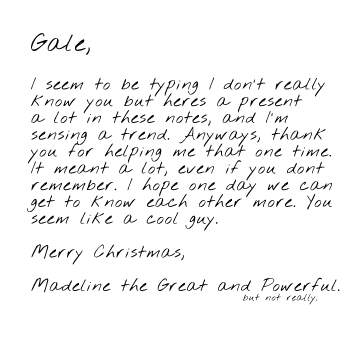 Gale,
I seem to be typing I don't really
know you but heres a present
a lot in these notes, and I'm
sensing a trend. Anyways, thank
you for helping me that one time.
It meant a lot, even if you dont
remember. I hope one day we can
get to know each other more. You
seem like a cool guy.
Merry Christmas,
Madeline the Great and Powerful.
but not really.